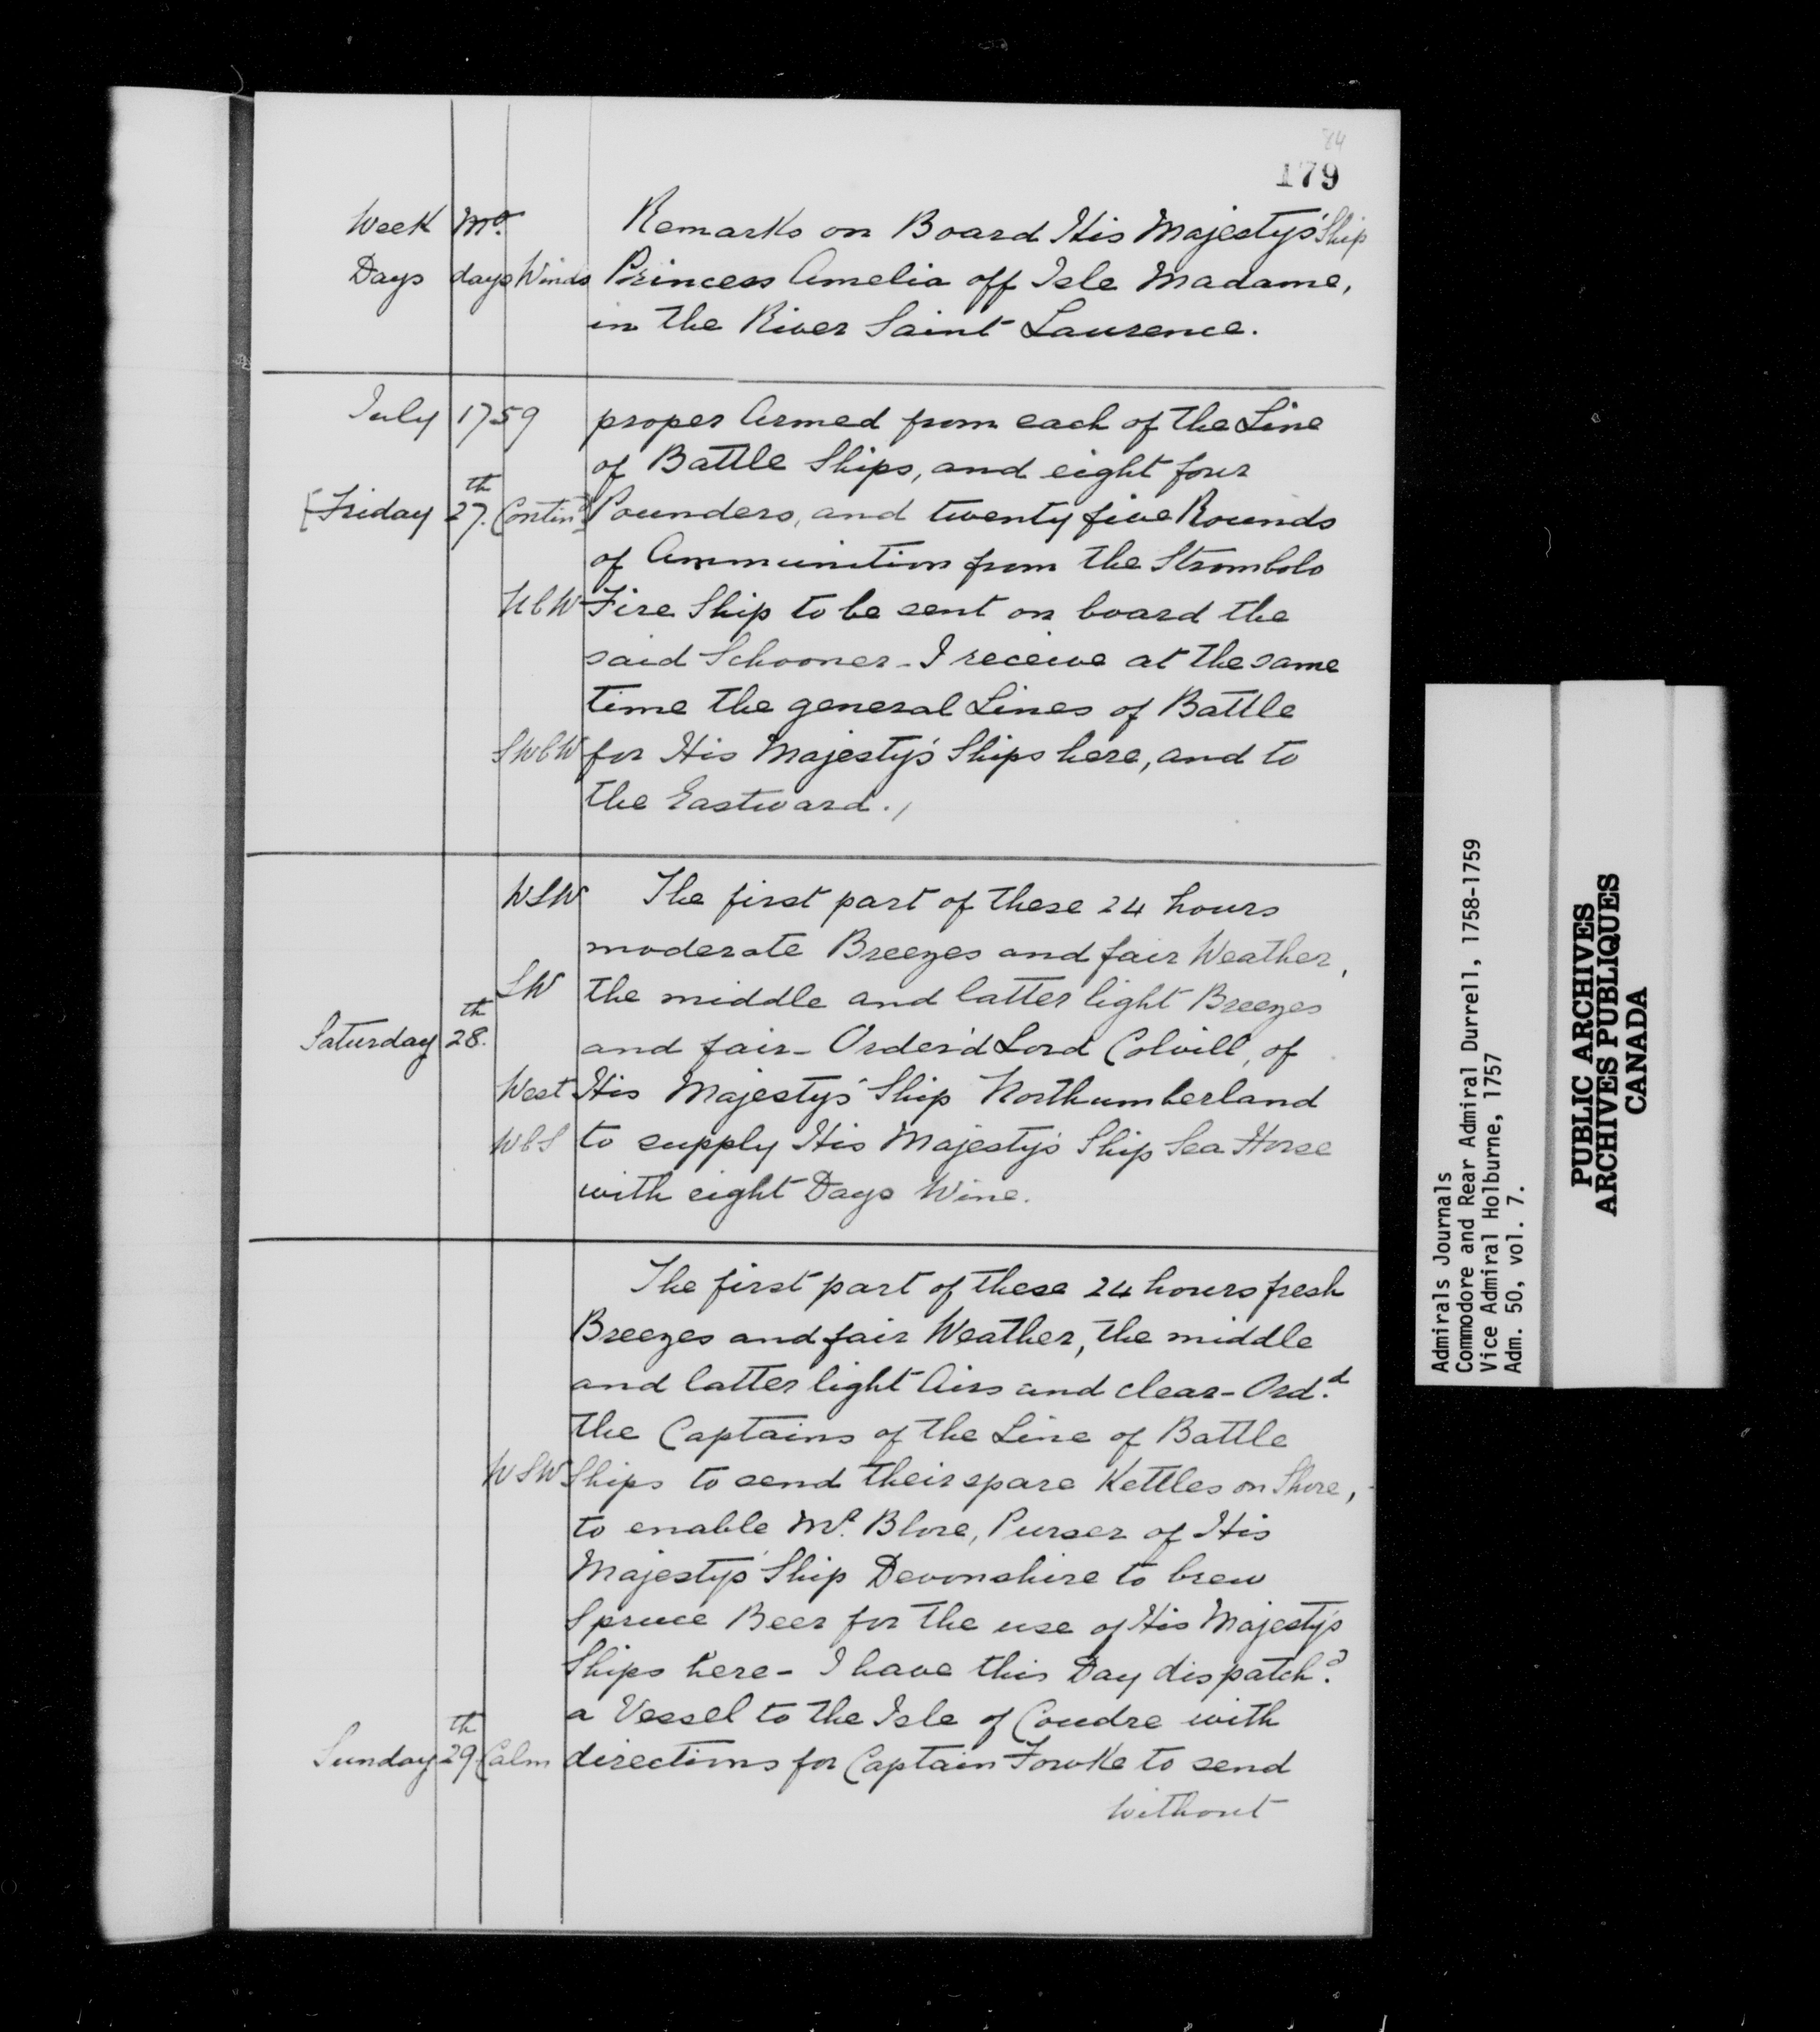 84
179
Week Mo. Remarks on Board His Majesty's Ship
Days days Winds Princess Amelia off Isle Madame,
in the River Saint Laurence.
July 1759 proper Armed from each of the Line
of Battle Ships, and eight four
[Friday 27.th Contin.d] Pounders, and twenty five Rounds
of Ammunition from the Strombolo
WbW Fire Ship to be sent on board the
said Schooner - I receive at the same
time the general Lines of Battle
SWbW for His Majesty's Ships here, and to
the Eastward./
WSW The first part of these 24 hours
moderate Breezes and fair Weather,
SW the middle and latter light Breezes
Saturday 28.th and fair - Order'd Lord Colvill, of
West His Majesty's Ship Northumberland
WbS to supply His Majesty's Ship Sea Horse
with eight Days Wine.
The first part of these 24 hours fresh
Breezes and fair Weather, the middle
and latter light Airs and clear - Ord.d
the Captains of the Line of Battle
WSW Ships to send their spare Kettles on Shore,
to enable Mr. Blore, Purser of His
Majesty's Ship Devonshire to brew
Spruce Beer for the use of His Majesty's
Ships here - I have this Day dispatch.d
a Vessel to the Isle of Coudre with
Sunday 29.th Calm directions for Captain Fowke to send
without
Admirals Journals
Commodore and Rear Admiral Durrell, 1758-1759
Vice Admiral Holburne, 1757
Adm. 50, vol. 7.
PUBLIC ARCHIVES
ARCHIVES PUBLIQUES
CANADA